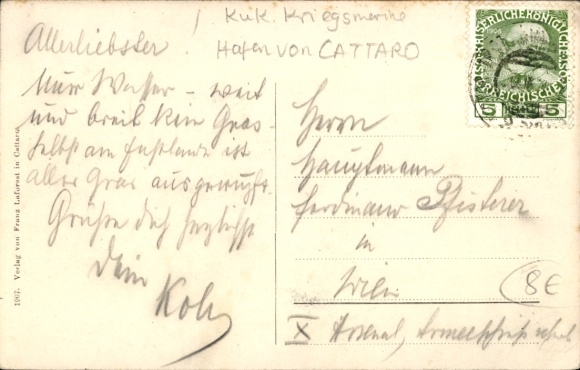 K.u.K. Kriegsmarine
Hafen von CATTARO
Allerliebster!
Nur Wasser – weit
und breit kein Gras
selbst am Festlande ist
alles Gras
Grüße dich herzlichst
Dein
KAISERLICHE KÖNIGLICHE
ÖSTERREICHISCHE
5 5
Herrn
Hauptmann
Ferdinand Pfisterer
in
Wien
X Arsenal,
8€
1907. Verlag von Franz Laforest in Cattaro.